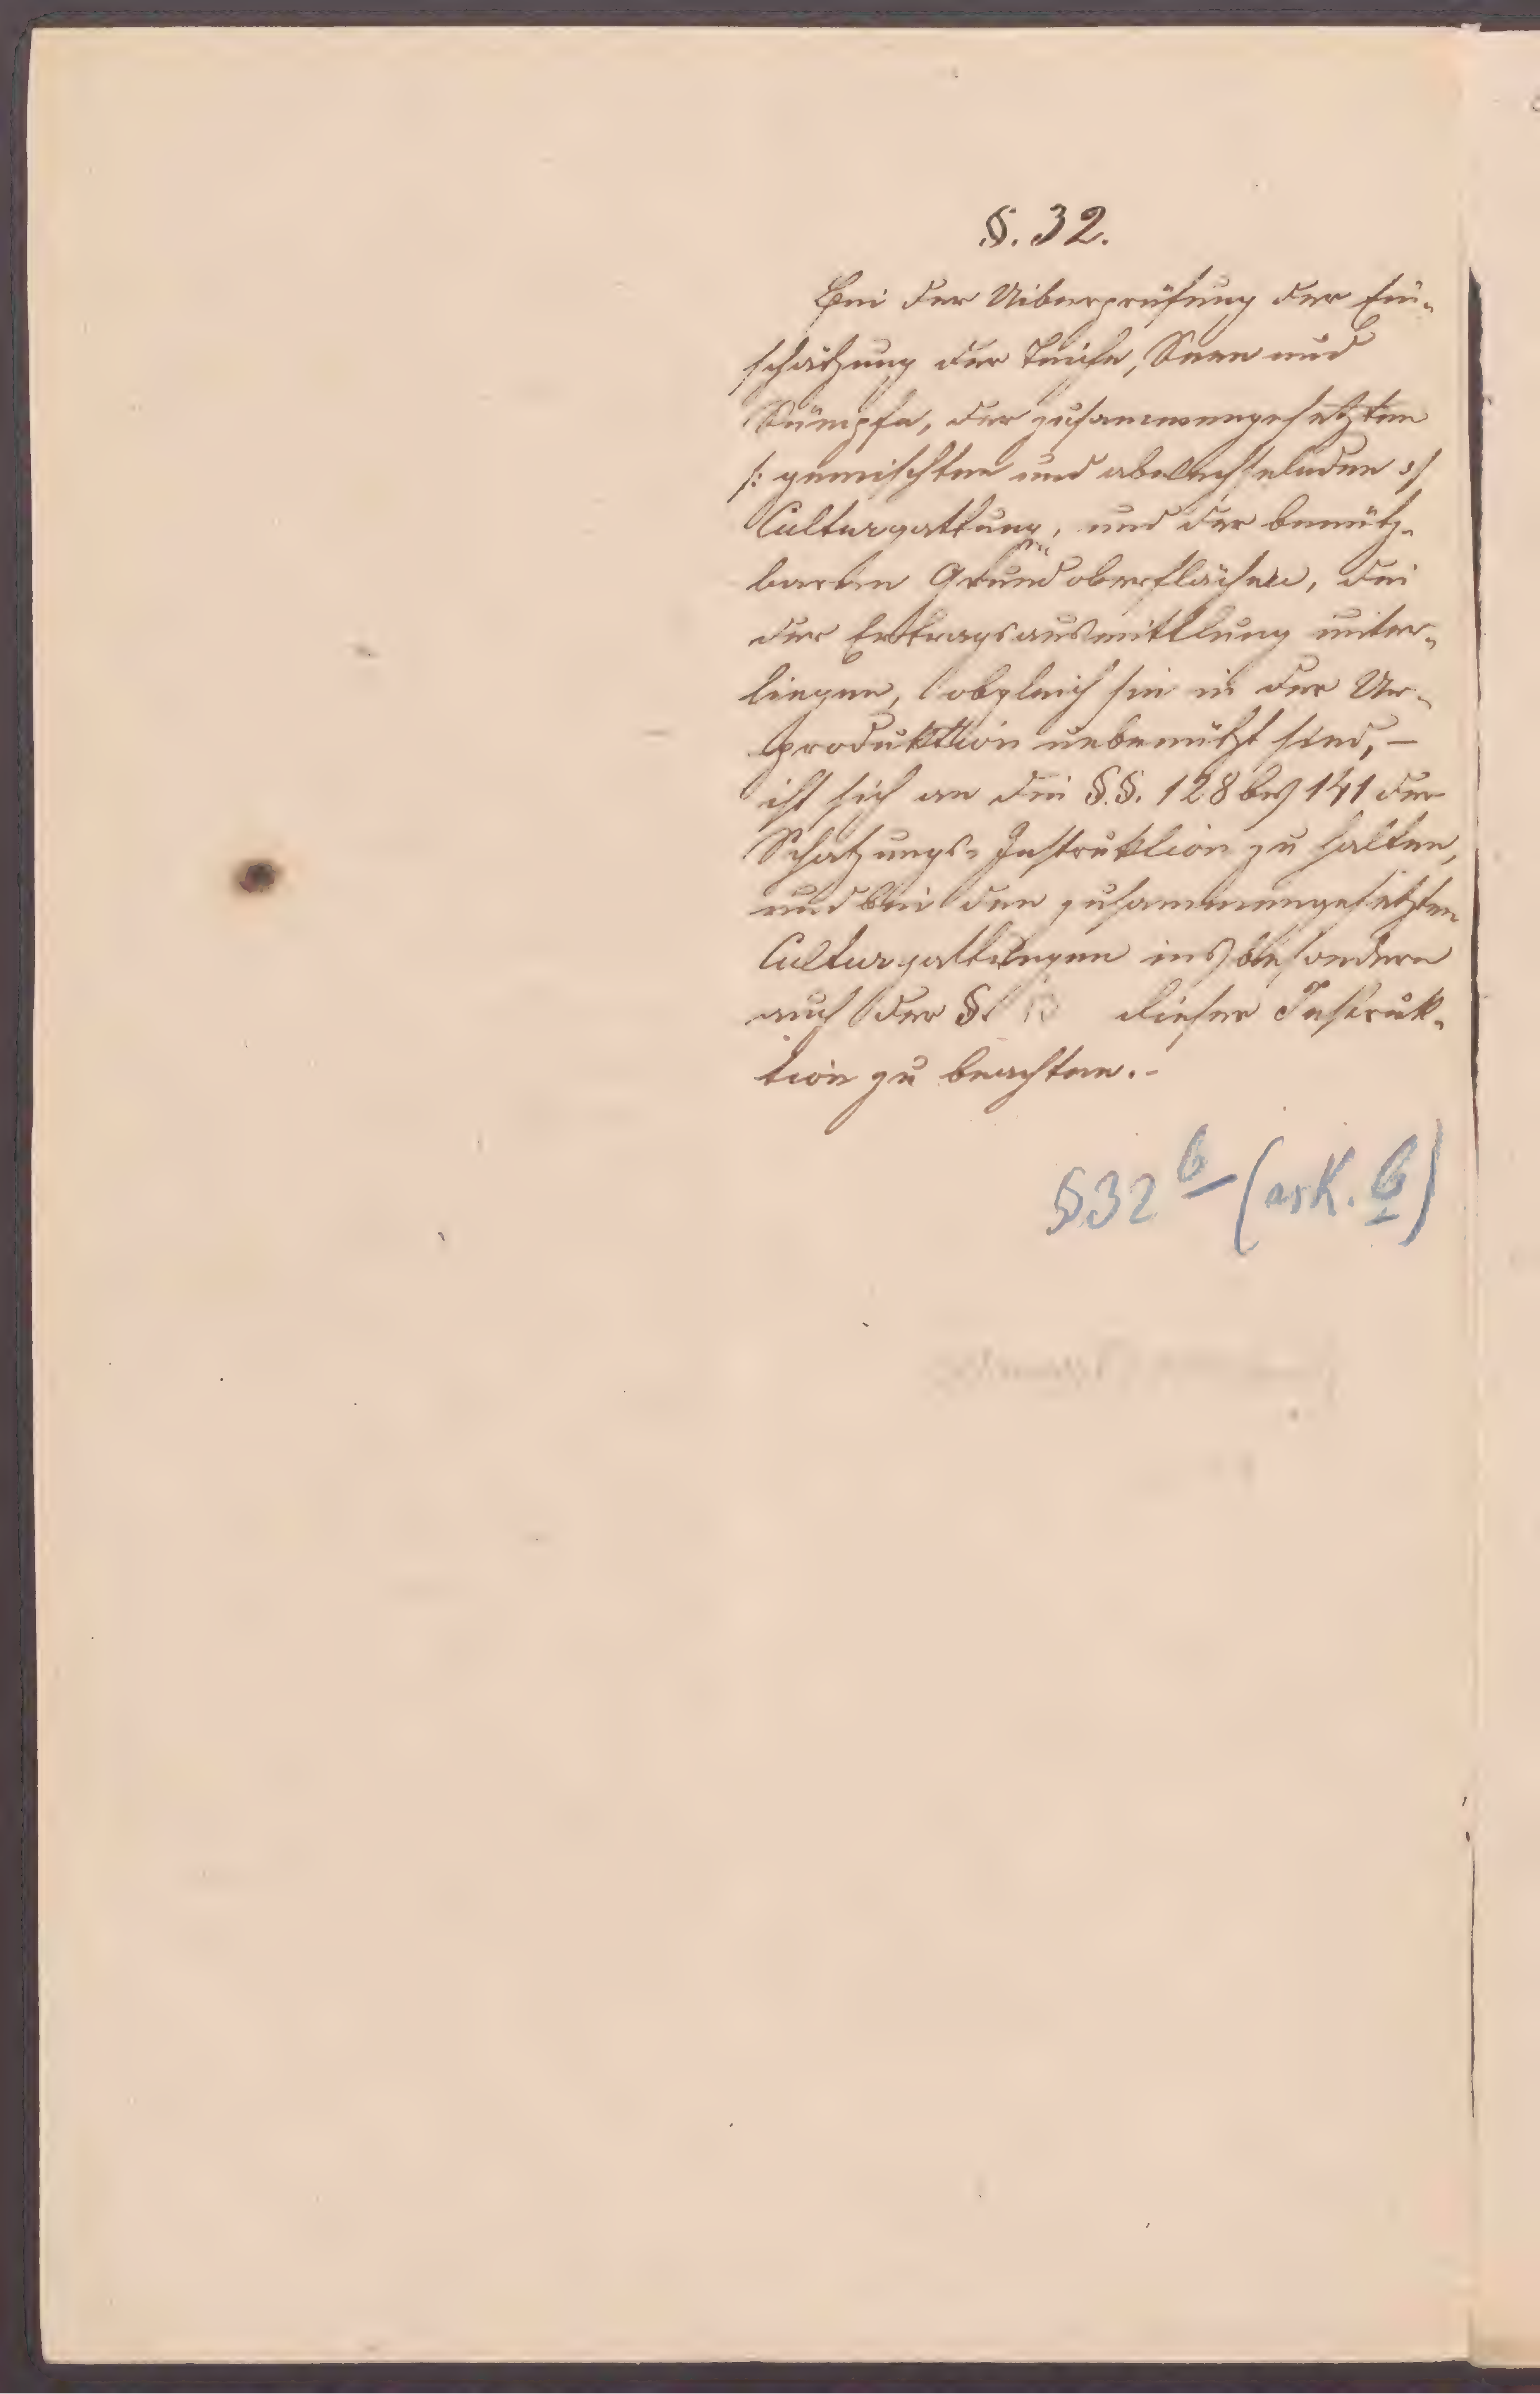 §. 32.
Bei der Uiberprüfung der Ein-
schätzung der Teiche, Seen und
Sümpfe, der zusammengesetzten
/: gemischten und abwechselnden :/
Culturgattung, und der benütz-
baren Grundoberflächen, die
der Ertragsausmittlung unter-
liegen, obgleich sie in der Ur-
produktion unbenützt sind, –
ist sich an die §.§. 128 bis 141 der
Schatzungs-Instruktion zu halten,
und bei den zusammengesetzten
Culturgattungen insbesondere
auch der §. 13 dieser Instruk-
tion zu beachten. -
§32 b (ark. b)